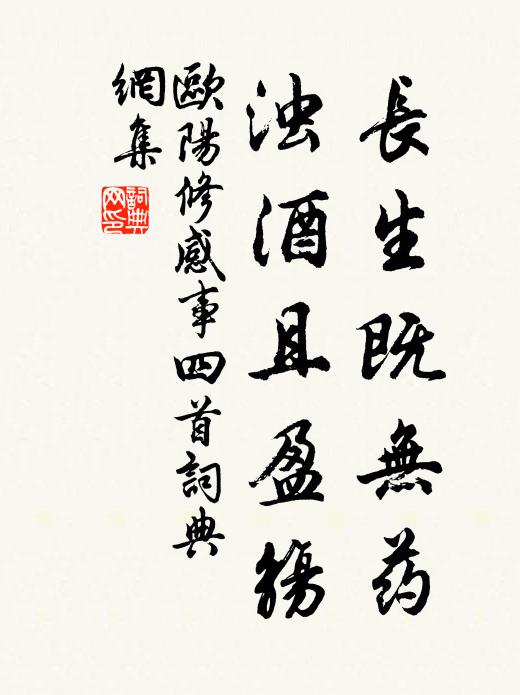 長生既無药
浊酒且盈觴
歐陽修感事四首詞典
網集
詞典
网印